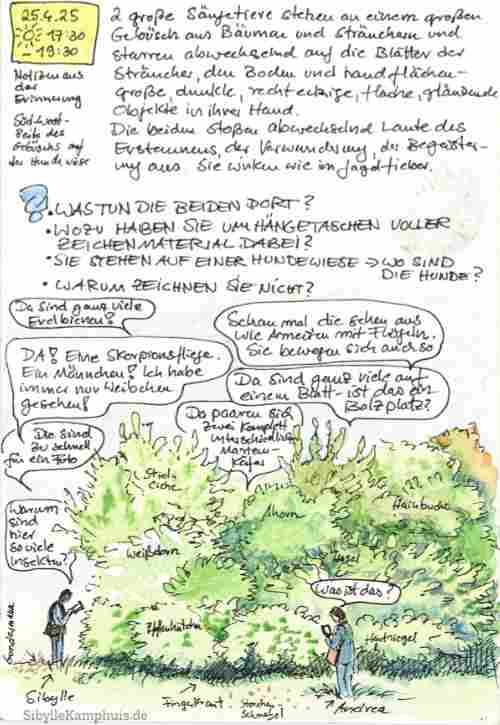 25.4.25
17:30
19:30
Notizen aus
der
Erinnerung
Südwest-
Seite des
Gebüschs auf
der Hundewiese
2 große Säugetiere stehen an einem großen
Gebüsch aus Bäumen und Sträuchern und
starren abwechselnd auf die Blätter der
Sträucher, den Boden und handflächen-
große, dunkle, rechteckige, flache, glänzende
Objekte in ihrer Hand.
Die beiden stoßen abwechselnd Laute des
Erstaunens, der Verwunderung, der Begeister-
ung aus. Sie wirken wie im Jagdfieber.
?
• WAS TUN DIE BEIDEN DORT?
• WOZU HABEN SIE UMHÄNGETASCHEN VOLLER
ZEICHENMATERIAL DABEI?
• SIE STEHEN AUF EINER HUNDEWIESE → WO SIND
DIE HUNDE?
• WARUM ZEICHNEN SIE NICHT?
Da sind ganz viele
Erdbienen!
Schau mal die sehen aus
wie Ameisen mit Flügeln.
Sie bewegen sich auch so
DA! Eine Skorpionsfliege.
Ein Männchen! Ich habe
immer nur Weibchen
gesehen!
Da sind ganz viele auf
einem Blatt - ist das ein
Balzplatz?
Da paaren sich
zwei komplett
unterschiedliche
Marien-
käfer
Die sind
zu schnell
für ein Foto
Warum
sind
hier
so viele
Insekten?
Was ist das?
Stiel-
Eiche
Ahorn
Hainbuche
Weißdorn
Hasel
Pfaffenhütchen
Hartriegel
Sibylle
Fingerkraut
Storchen-
Schnabel
Andrea
SibylleKamphuis.de